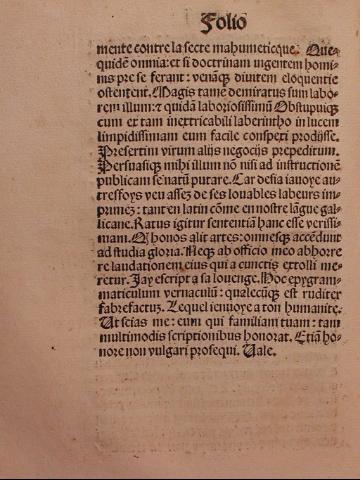 Folio
mente contre la secte mahumeticque. Que
quidē omnia: et si doctrinam ingentem homi
nis pre se ferant: venāqꝫ diuitem eloquentie
ostentent. Magis tamē demiratus sum labo
rem illum: ⁊ quidā laboriosissimū Obstupuiqꝫ
cum ex tam inextricabili laberintho in lucem
limpidissimam eum facile conspexi prodijsse.
Presertim virum alijs negocijs prepeditum.
Persuasiqꝫ mihi illum nō nisi ad instructionē
publicam se natū putare. Car desia iavoye au
tresfoys veu assez de ses louables labeurs im
primez: tant en latin cōme en nostre lāgue gal
licane. Ratus igitur sententiā hanc esse verissi
mam. Qꝫ honos alit artes: omnesqꝫ accēdunt
ad studia gloria. Neqꝫ ab officio meo abhorre
re laudationem eius qui a cunctis extolli me
retur. Jay escript a sa louenge. Hoc epygram
maticulum vernaculū: qualecūqꝫ est ruditer
fabrefactuz. Lequel ienuoye a ton humanite.
Ut scias me: eum qui familiam tuam: tam
multimodis scriptionibus honorat. Etiā ho
nore non vulgari prosequi. Vale.